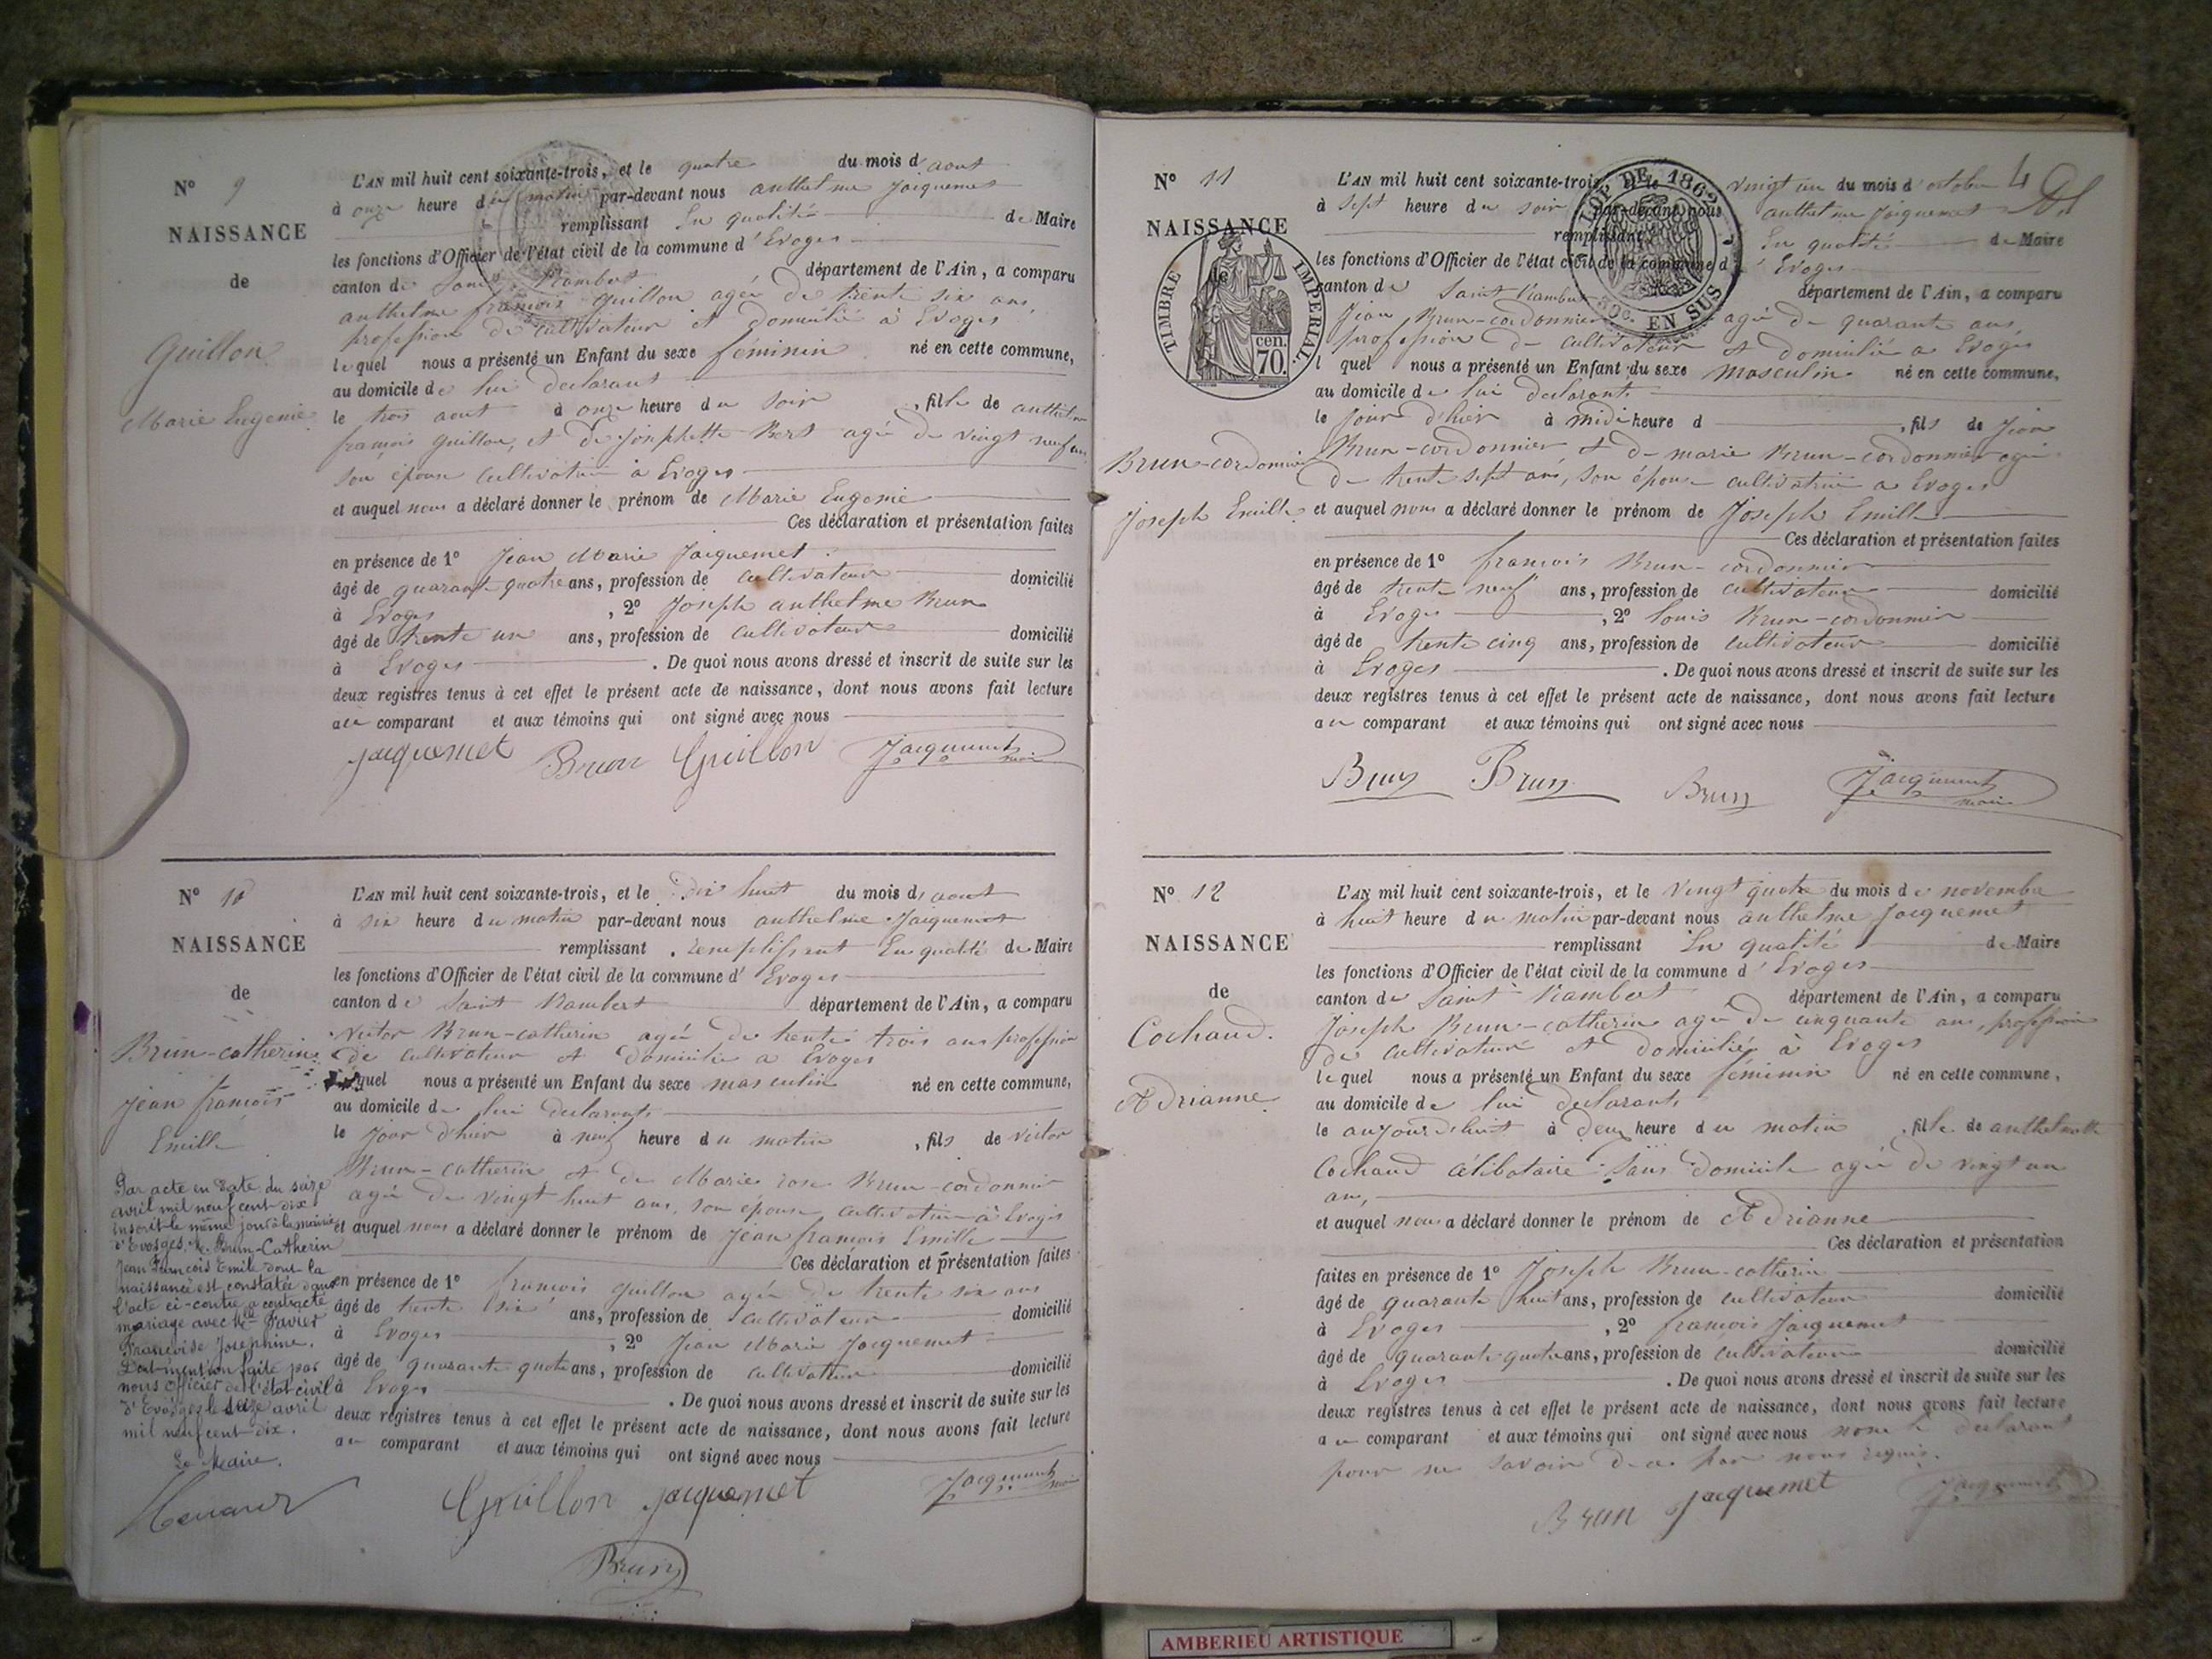 N° 9
NAISSANCE
de
Guillon
Marie Eugenie
L'AN mil huit cent soixante-trois, et le quatre du mois d'aout
à onze heure du matin par-devant nous anthelme Jacquemet
remplissant En qualité de Maire
les fonctions d'Officier de l'état civil de la commune d'Evoges
canton de Saint Rambert département de l'Ain, a comparu
anthelme françois Guillon agée de trente six ans
profession de cultivateur et domicilié à Evoges
lequel nous a présenté un Enfant du sexe féminin né en cette commune,
au domicile de lui declarant
le trois aout à onze heure du soir, fille de anthelme
françois Guillon, et de Josephette Bert agée de vingt neuf ans
son épouse cultivatrice à Evoges
et auquel nous a déclaré donner le prénom de Marie Eugenie
Ces déclaration et présentation faites
en présence de 1° Jean Marie Jacquemet
âgé de quarante quatre ans, profession de cultivateur domicilié
à Evoges, 2° Joseph anthelme Brun
âgé de trente un ans, profession de cultivateur domicilié
à Evoges. De quoi nous avons dressé et inscrit de suite sur les
deux registres tenus à cet effet le présent acte de naissance, dont nous avons fait lecture
au comparant et aux témoins qui ont signé avec nous
Jacquemet Brun Guillon Jacquemet maire
N° 10
NAISSANCE
de
Brun-catherin
Jean françois
Emille
Par acte en date du seize
avril mil neuf cent dix
inscrit le même jour à la mairie
d'Evosges, M. Brun-Catherin
Jean François Emile dont la
naissance est constatée dans
l'acte ci-contre a contracté
mariage avec Mlle Favier
Françoise Josephine.
Dont mention faite par
nous Officier de l'état civil
d'Evosges le seize avril
mil neuf cent dix.
Le Maire,
L'AN mil huit cent soixante-trois, et le dix huit du mois d'aout
à six heure du matin par-devant nous anthelme Jacquemet
remplissant. remplissant En qualité de Maire
les fonctions d'Officier de l'état civil de la commune d'Evoges
canton de Saint Rambert département de l'Ain, a comparu
Victor Brun-catherin agée de trente trois ans profession
de cultivateur et domicilié a Evoges
lequel nous a présenté un Enfant du sexe masculin né en cette commune,
au domicile de lui declarant
le jour d'hier à neuf heure du matin, fils de victor
Brun-catherin et de Marie rose Brun-cordonnier
agée de vingt huit ans, son épouse cultivatrice à Evoges
et auquel nous a déclaré donner le prénom de Jean françois Emille
Ces déclaration et présentation faites
en présence de 1° françois Guillon agée de trente six ans
âgé de trente six ans, profession de cultivateur domicilié
à Evoges, 2° Jean Marie Jacquemet
âgé de quarante quatre ans, profession de cultivateur domicilié
à Evoges. De quoi nous avons dressé et inscrit de suite sur les
deux registres tenus à cet effet le présent acte de naissance, dont nous avons fait lecture
au comparant et aux témoins qui ont signé avec nous
Guillon Jacquemet Jacquemet maire
Brun
N° 11
NAISSANCE
de
TIMBRE IMPERIAL.
cen. 70.
LOI DE 1862
50c. EN SUS
Brun-cordonnier
Joseph Emille
L'AN mil huit cent soixante-trois, et le vingt un du mois d'octobre 4
à Sept heure du soir par-devant nous anthelme Jacquemet
remplissant En qualité de Maire
les fonctions d'Officier de l'état civil de la commune d'Evoges
canton de Saint Rambert département de l'Ain, a comparu
Jean Brun-cordonnier agée de quarante ans,
profession de cultivateur et domicilié a Evoges
l quel nous a présenté un Enfant du sexe masculin né en cette commune,
au domicile de lui declarant
le jour d'hier à midi heure d, fils de Jean
Brun-cordonnier, et de marie Brun-cordonnier agée
de trente sept ans, son épouse cultivatrice a Evoges
et auquel nous a déclaré donner le prénom de Joseph Emille
Ces déclaration et présentation faites
en présence de 1° françois Brun-cordonnier
âgé de trente neuf ans, profession de cultivateur domicilié
à Evoges, 2° Louis Brun-cordonnier
âgé de trente cinq ans, profession de cultivateur domicilié
à Evoges. De quoi nous avons dressé et inscrit de suite sur les
deux registres tenus à cet effet le présent acte de naissance, dont nous avons fait lecture
au comparant et aux témoins qui ont signé avec nous
Brun Brun Brun Jacquemet maire
N° 12
NAISSANCE
de
Cochaud.
Adrianne
L'AN mil huit cent soixante-trois, et le vingt quatre du mois de novembre
à huit heure du matin par-devant nous anthelme Jacquemet
remplissant En qualité de Maire
les fonctions d'Officier de l'état civil de la commune d'Evoges
canton de Saint Rambert département de l'Ain, a comparu
Joseph Brun-catherin agée de cinquante ans, profession
de cultivateur et domicilié à Evoges
lequel nous a présenté un Enfant du sexe féminin né en cette commune,
au domicile de lui declarant
le aujourdhuit à deux heure du matin, fille de anthelmette
Cochaud célibataire sans domicile agée de vingt un
ans,
et auquel nous a déclaré donner le prénom de Adrianne
Ces déclaration et présentation
faites en présence de 1° Joseph Brun-catherin
âgé de quarante huit ans, profession de cultivateur domicilié
à Evoges, 2° françois Jacquemet
âgé de quarante quatre ans, profession de cultivateur domicilié
à Evoges. De quoi nous avons dressé et inscrit de suite sur les
deux registres tenus à cet effet le présent acte de naissance, dont nous avons fait lecture
au comparant et aux témoins qui ont signé avec nous non le declarant
pour ne savoir de ce par nous requis.
Brun Jacquemet Jacquemet
AMBERIEU ARTISTIQUE